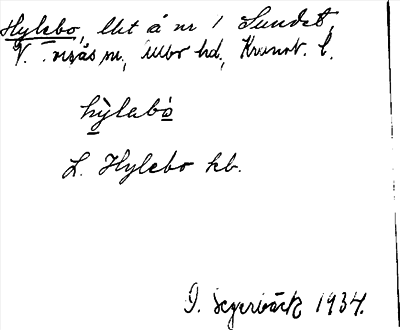 Hylebo, lht å nr 1 Sundet,
V. Torsås sn, Allbo hd, Kronob. l.
hỳlabò
L. Hylebo hb.
I. Segerbäck 1934.